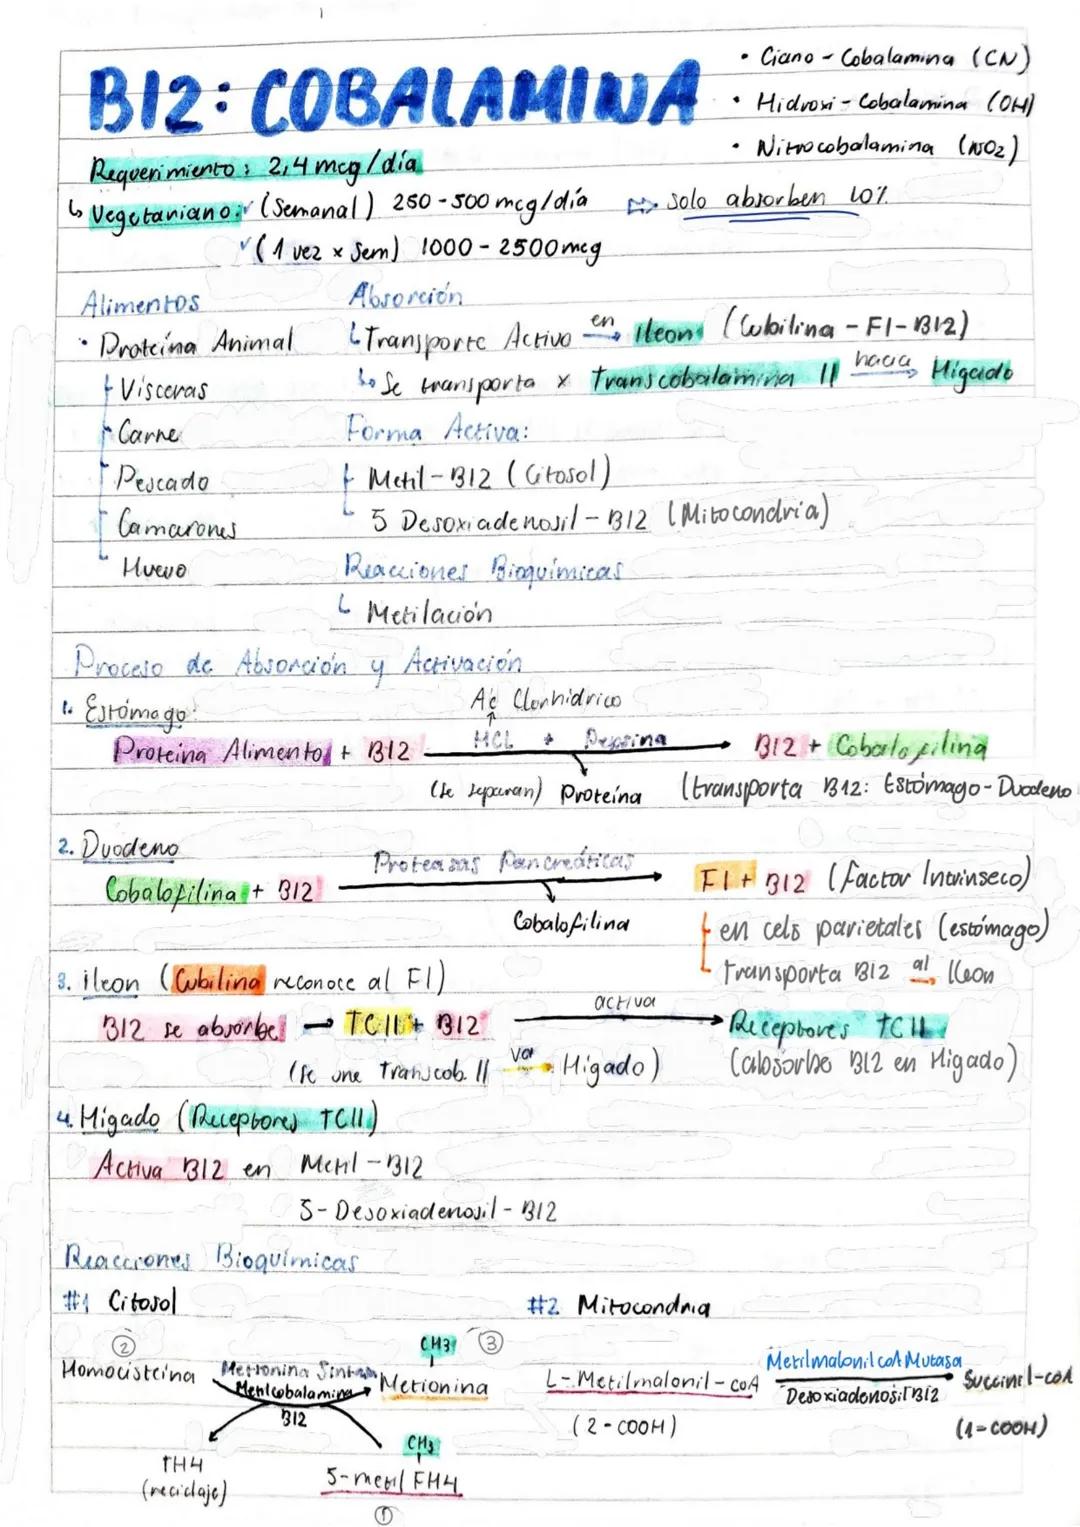 B12: COBALAMINA
• Ciano - Cobalamina (CN)
• Hidroxi - Cobalamina (OH)
• Nitrocobalamina (NO2)
Requerimiento: 2,4 mcg/día
↳ Vegetariano: ✓ (Semanal) 250-500 mcg/día ⇨ solo absorben 10%
✓ (1 vez x Sem) 1000-2500mcg
Alimentos
• Proteína Animal
Vísceras
Carne
Pescado
Camarones
Huevo
Absorción
↳ Transporte Activo en → íleon (Cubilina - FI - B12)
↳ Se transporta x Transcobalamina II hacia → Hígado
Forma Activa:
Metil - B12 (Citosol)
5 Desoxiadenosil - B12 (Mitocondria)
Reacciones Bioquímicas
↳ Metilación
Proceso de Absorción y Activación
1. Estómago:
Ac Clorhídrico
↑
Proteína Alimento + B12 HCL + Pepsina → B12 + Cobalofilina
(se separan) Proteína (transporta B12: Estómago - Duodeno
2. Duodeno
Cobalofilina + B12 Proteasas Pancreáticas → FI + B12 (factor Intrínseco)
Cobalofilina
en cels parietales (estómago)
Transporta B12 al → Íleon
3. íleon (Cubilina reconoce al FI)
B12 se absorbe → TCII + B12 activa → Receptores TCII
(se une Transcob. II va → Hígado) (absorbe B12 en Hígado)
4. Hígado (Receptores TCII)
Activa B12 en Metil - B12
5 - Desoxiadenosil - B12
Reacciones Bioquímicas
#1 Citosol
② CH3 ③
Homocisteína Metionina Sintasa → Metionina
Metilcobalamina
B12
CH3
FH4 5-metil FH4
(reciclaje)
①
#2 Mitocondria
L-Metilmalonil-coA Metilmalonil coA Mutasa → Succinil-coA
Desoxiadenosil B12
(2-COOH) (1-COOH)